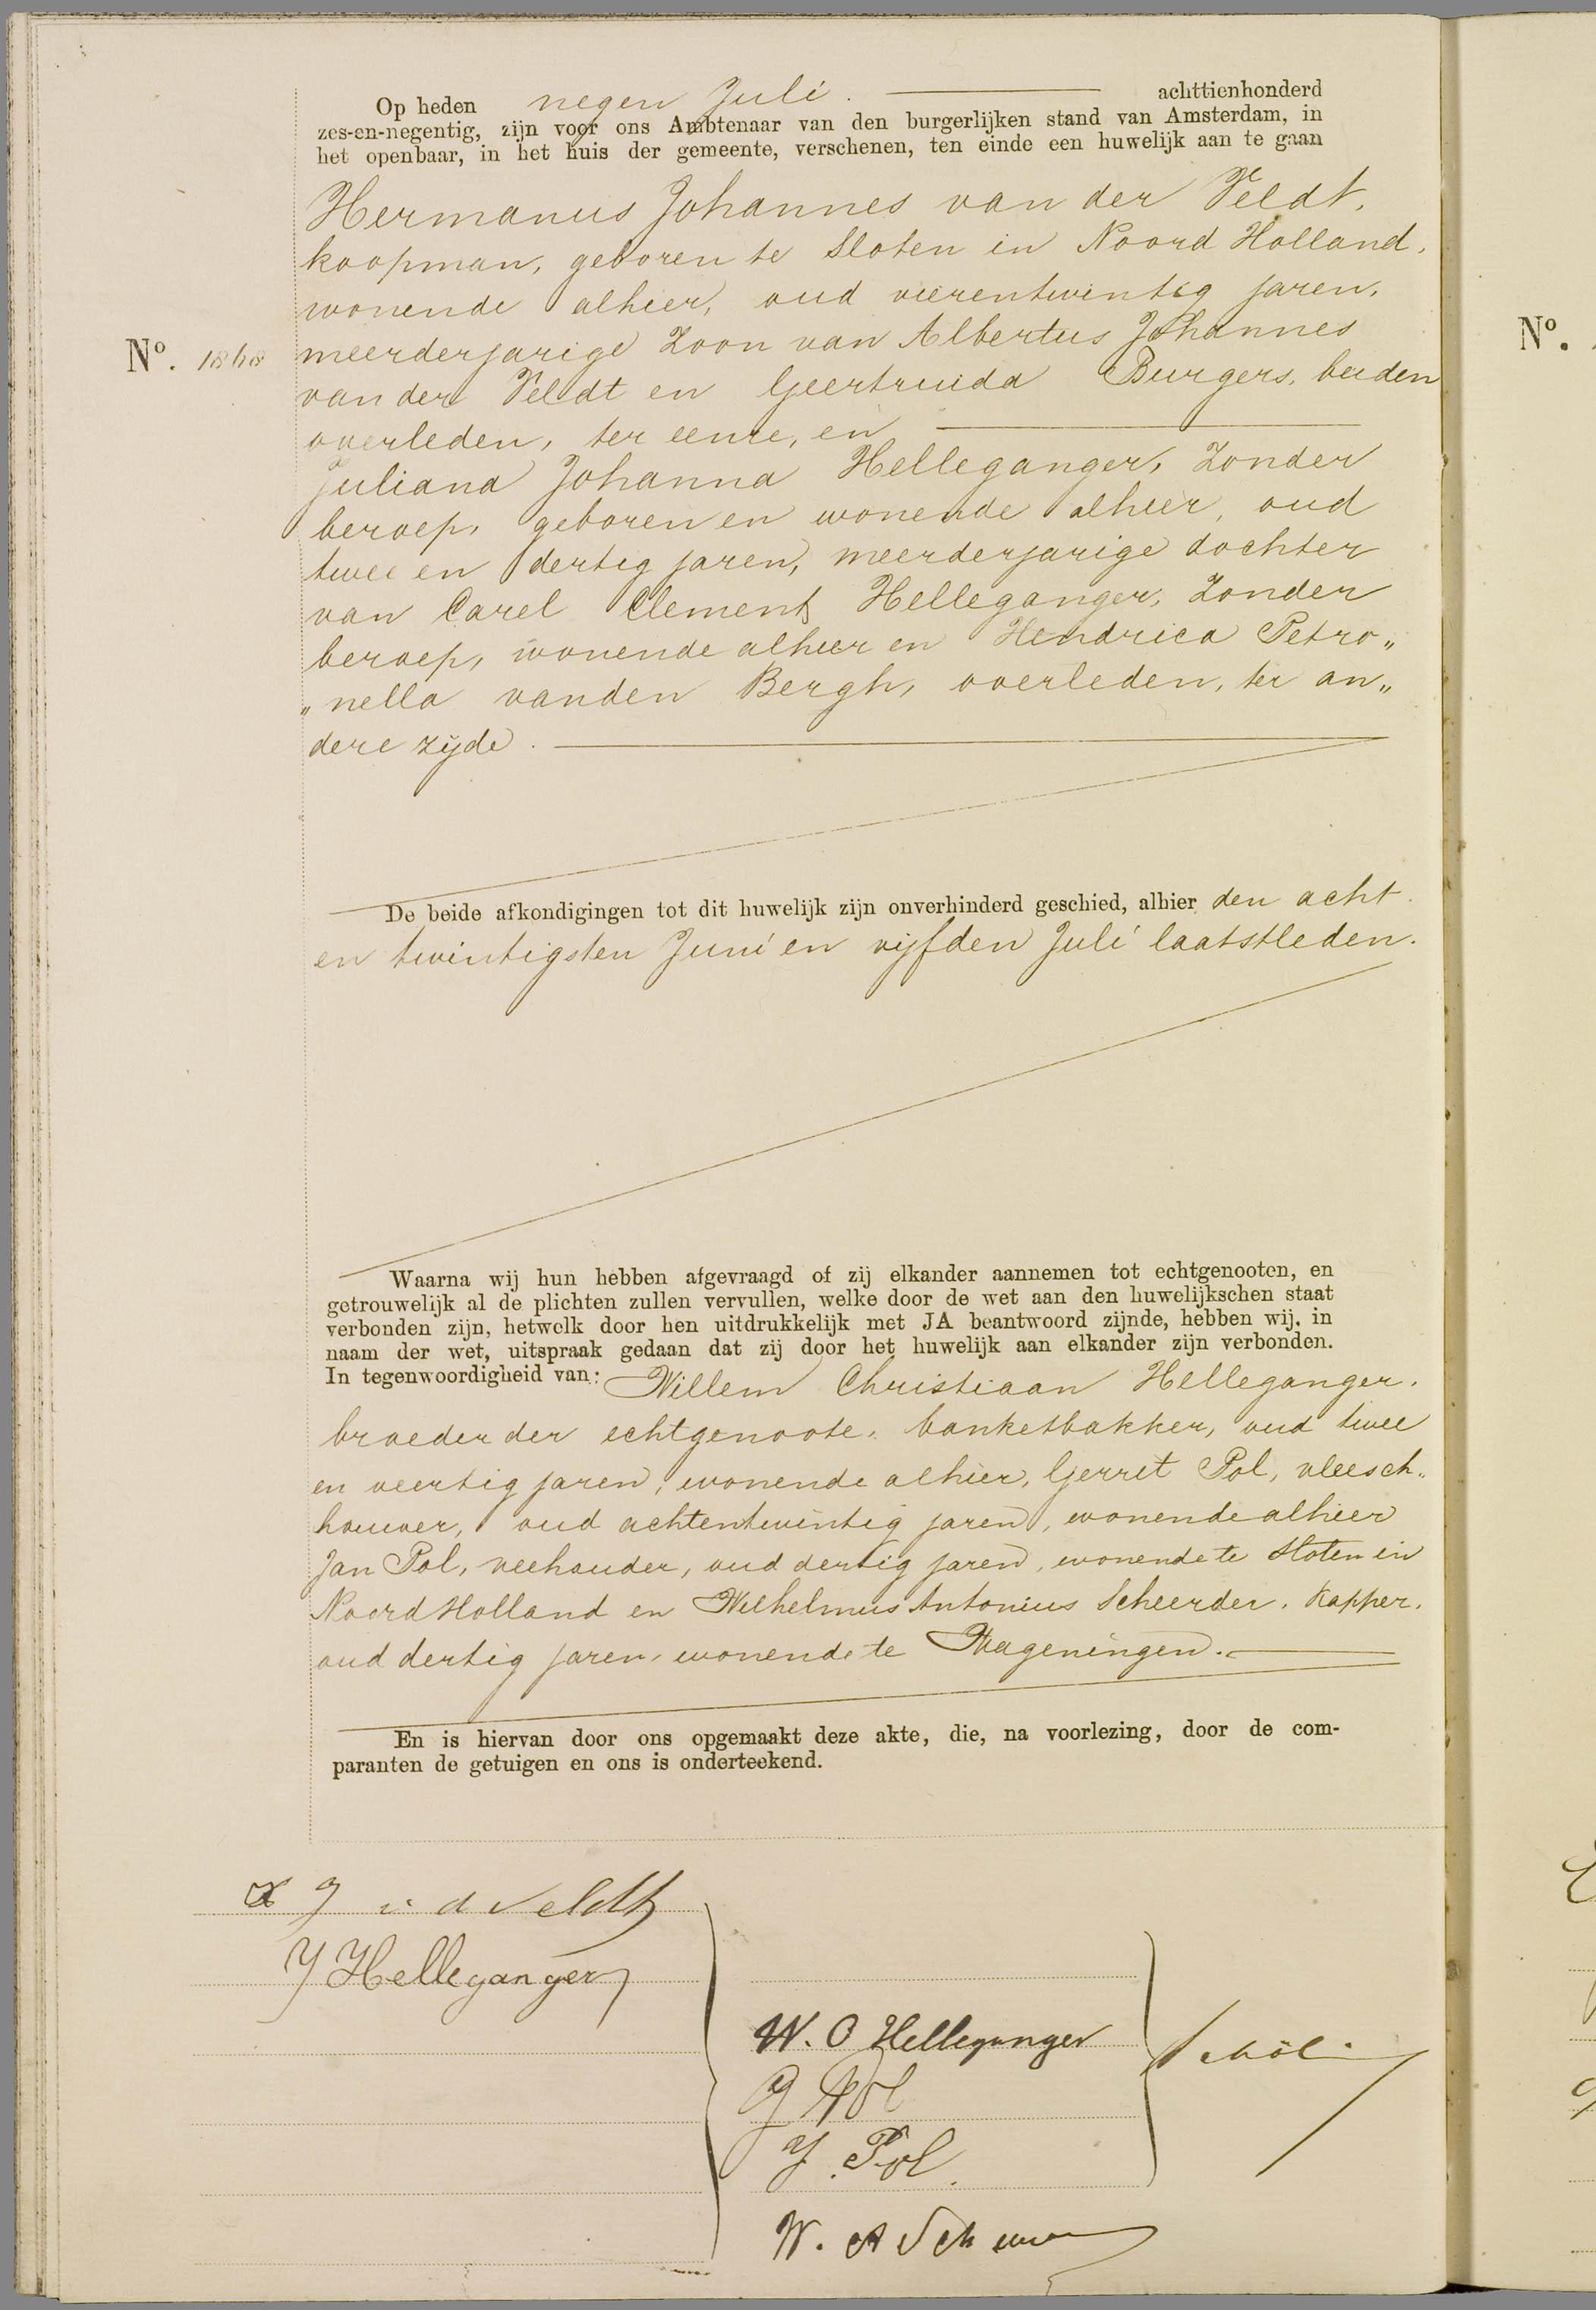 Op heden negen Juli. achttienhonderd
zes-en-negentig, zijn voor ons Ambtenaar van den burgerlijken stand van Amsterdam, in
het openbaar, in het huis der gemeente, verschenen, ten einde een huwelijk aan te gaan
Hermanus Johannes van der Veldt,
koopman, geboren te Sloten in Noord Holland,
wonende alhier, oud vierentwintig jaren,
No. 1868 meerderjarige Zoon van Albertus Johannes
van der Veldt en Geertruida Burgers, beiden
overleden, ter eenre, en
Juliana Johanna Helleganger, Zonder
beroep, geboren en wonende alhier, oud
twee en dertig jaren, meerderjarige dochter
van Carel Clement Helleganger, Zonder
beroep, wonende alhier en Hendrica Petro„
„nella van den Bergh, overleden, ter an„
dere zijde.
De beide afkondigingen tot dit huwelijk zijn onverhinderd geschied, alhier den acht
en twintigsten Juni en vijfden Juli laatstleden.
Waarna wij hun hebben afgevraagd of zij elkander aannemen tot echtgenooten, en
getrouwelijk al de plichten zullen vervullen, welke door de wet aan den huwelijkschen staat
verbonden zijn, hetwelk door hen uitdrukkelijk met JA beantwoord zijnde, hebben wij, in
naam der wet, uitspraak gedaan dat zij door het huwelijk aan elkander zijn verbonden.
In tegenwoordigheid van: Willem Christiaan Helleganger,
broeder der echtgenoote, banketbakker, oud twee
en veertig jaren, wonende alhier, Gerret Pol, vleesch„
houwer, oud achtentwintig jaren, wonende alhier
Jan Pol, veehouder, oud dertig jaren, wonende te Sloten in
Noord Holland en Wilhelmus Antonius Scheerder, Kapper,
oud dertig jaren, wonende te Wageningen.
En is hiervan door ons opgemaakt deze akte, die, na voorlezing, door de com-
paranten de getuigen en ons is onderteekend.
J v d Veldt
J Helleganger
W. C Helleganger
G Pol
J. Pol
W. A
No.